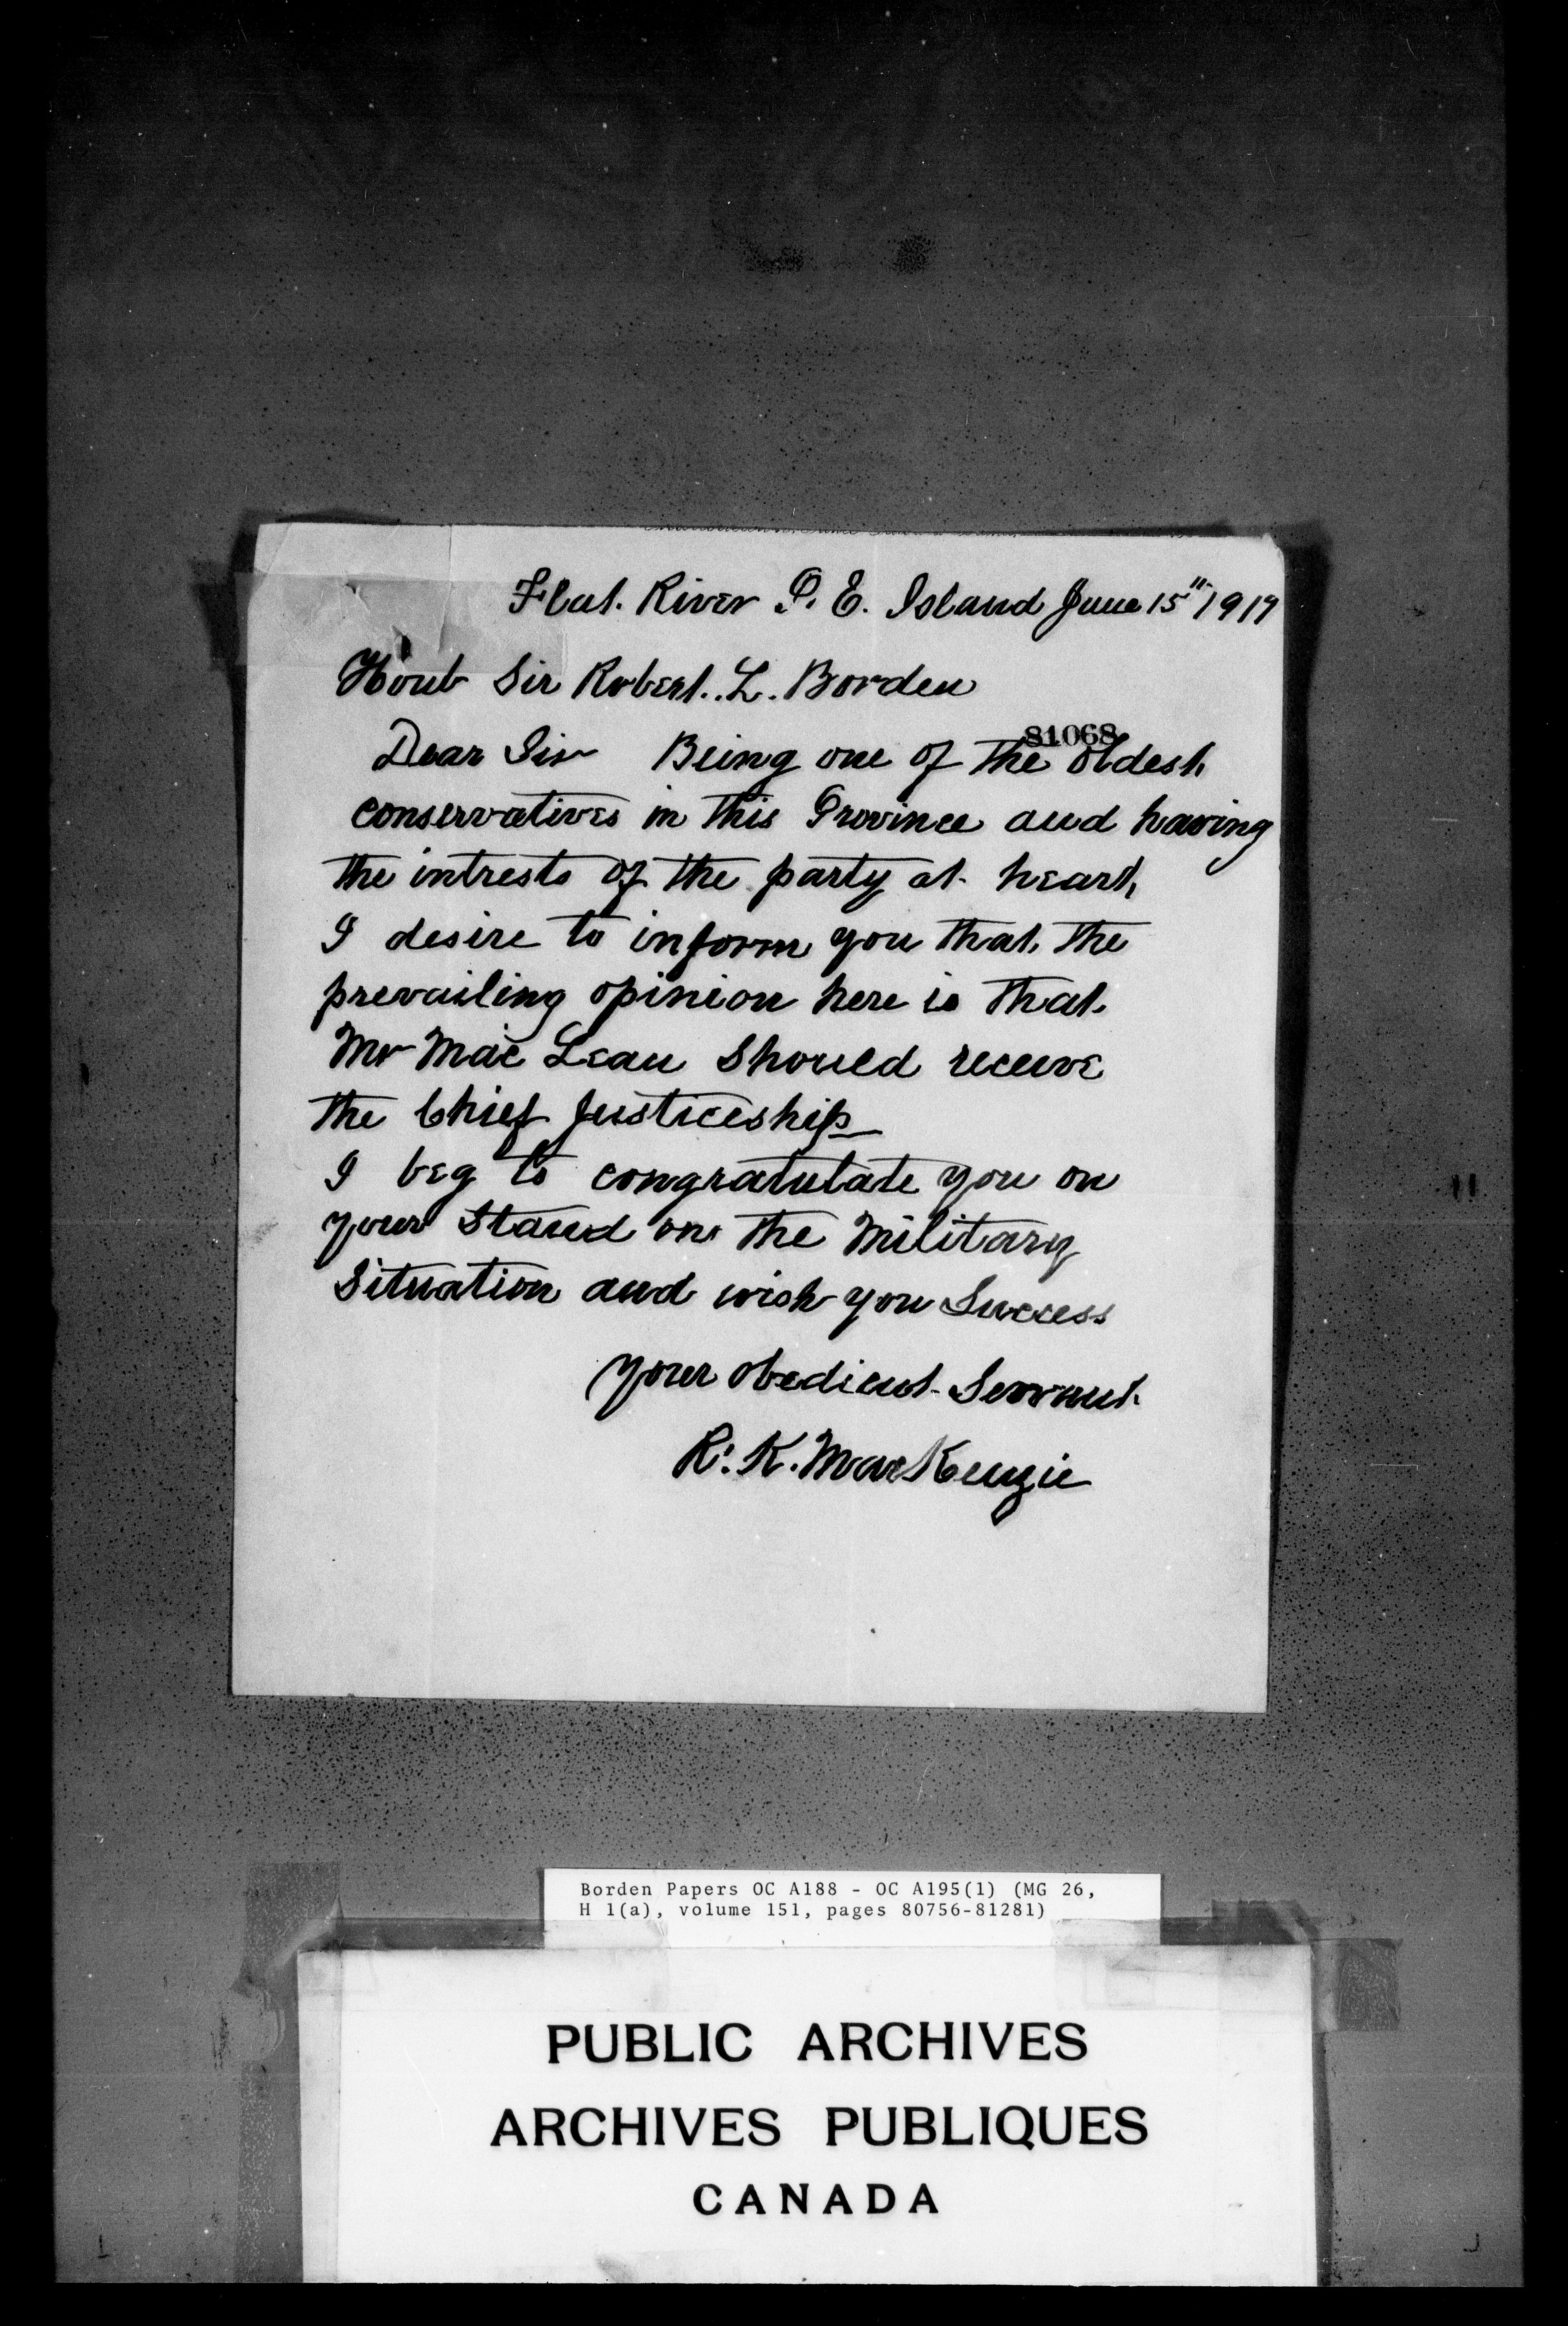 Flat River P. E. Island June 15" 1917
Honb Sir Robert. L. Borden
81068
Dear Sir Being one of the oldest
conservatives in this Province and having
the intrests of the party at heart
I desire to inform you that the
prevailing opinion here is that
Mr Mac Lean should receive
the Chief Justiceship
I beg to congratulate you on
your Stand on the Military
Situation and wish you Success
Your obedient Servant
R. K. MacKenzie
Borden Papers OC A188 - OC A195(1) (MG 26,
H 1(a), volume 151, pages 80756-81281)
PUBLIC ARCHIVES
ARCHIVES PUBLIQUES
CANADA